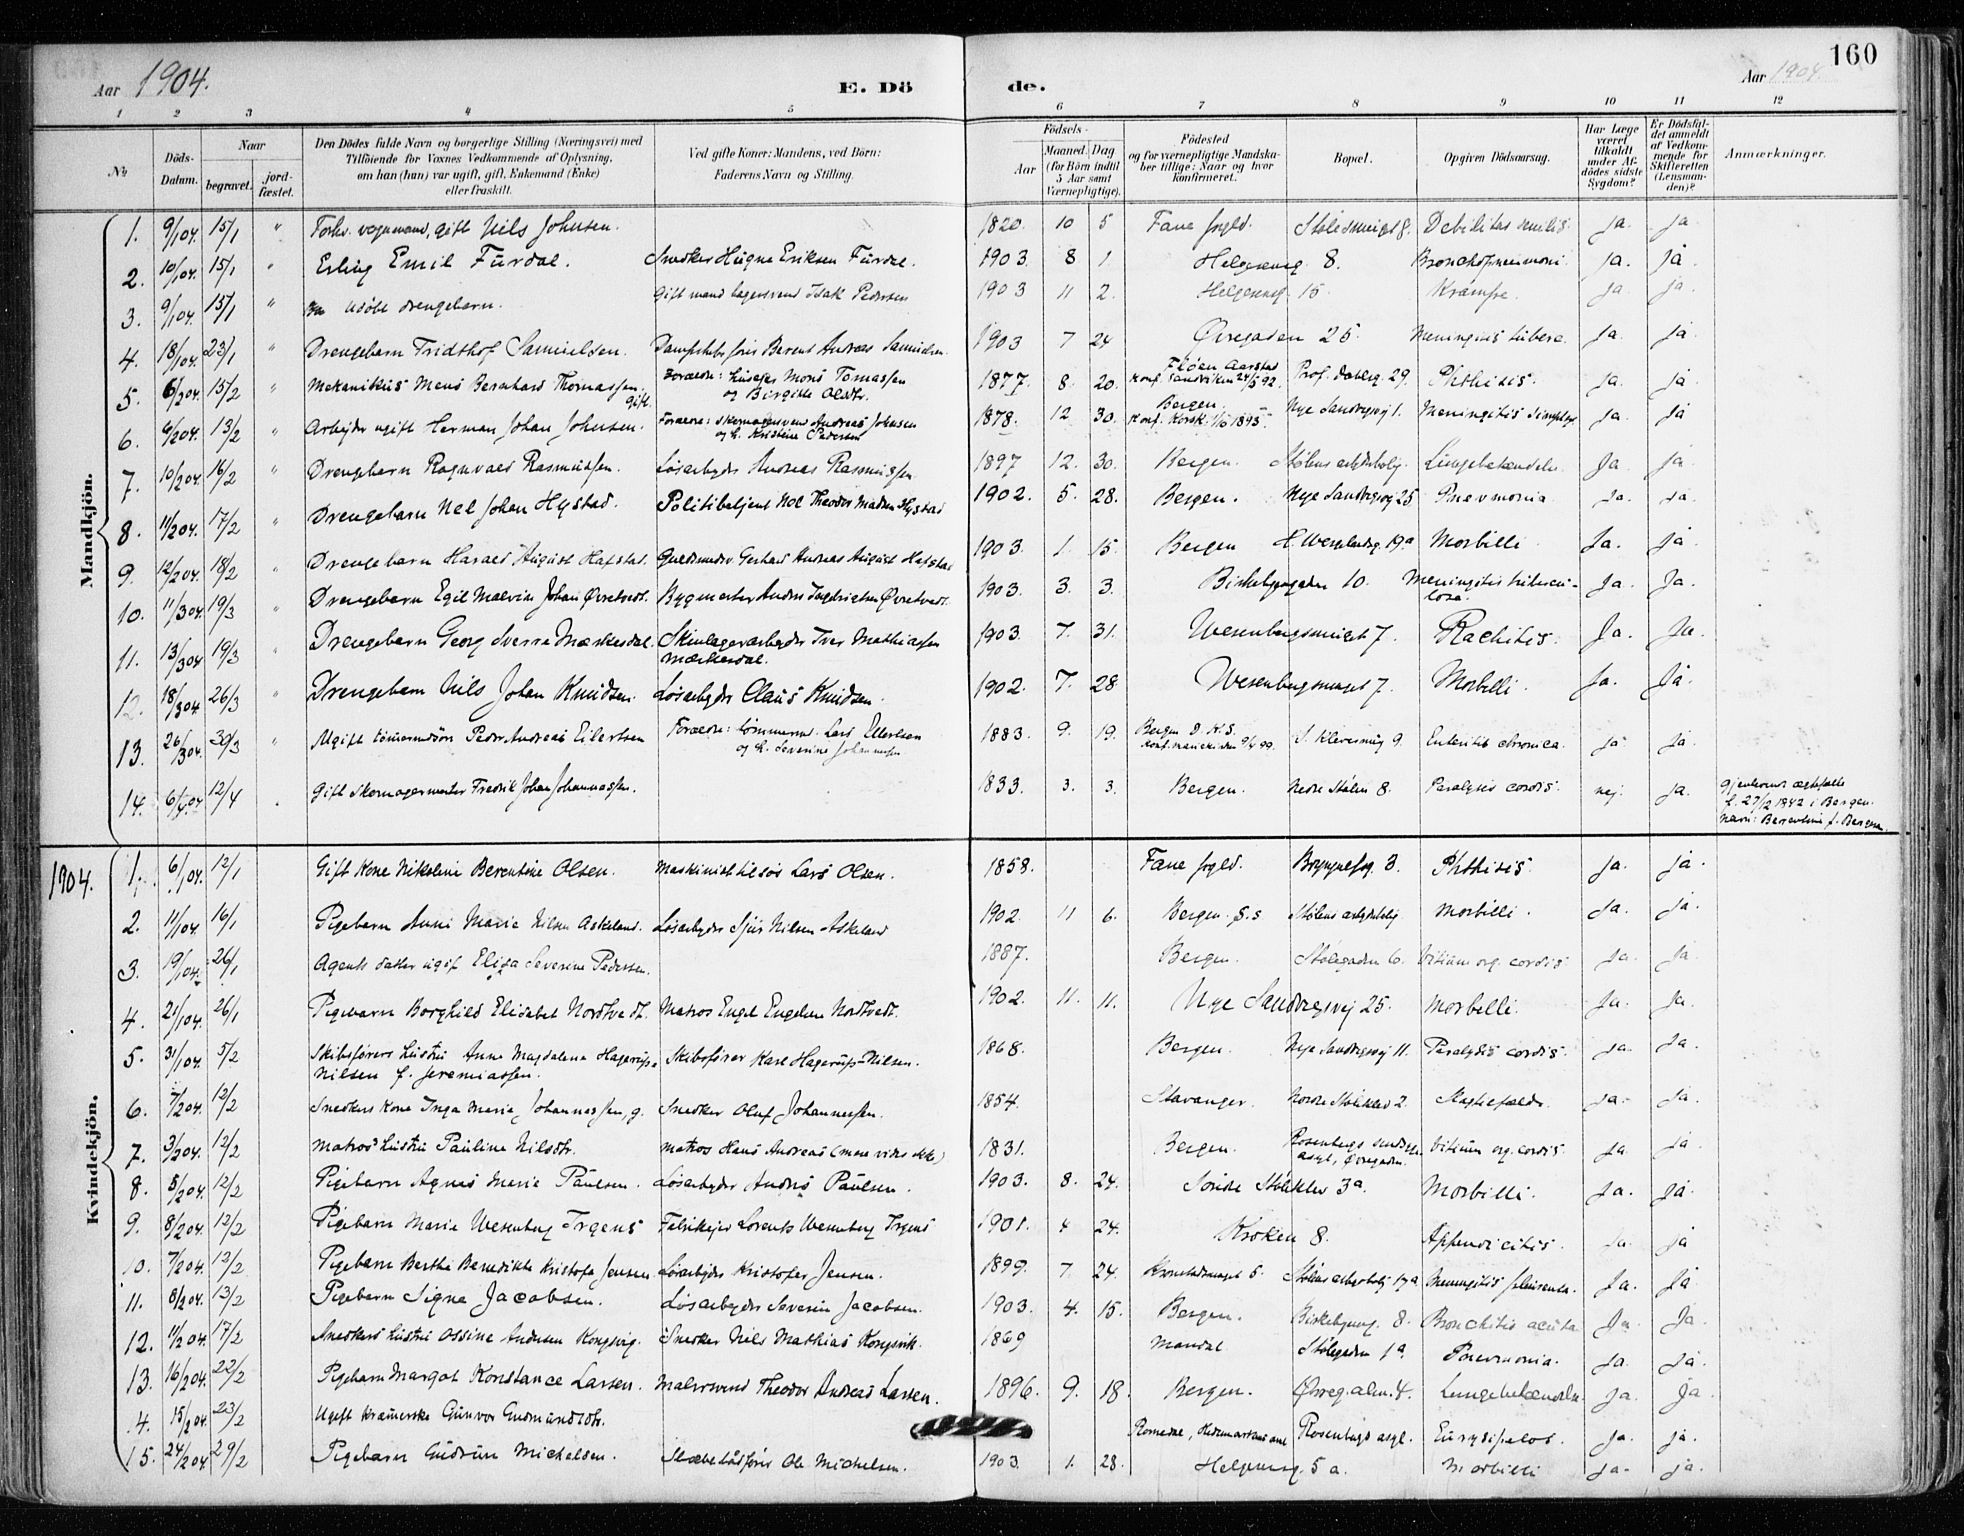 160
Aar 1904.
E. Dö
de.
Aar 1904.
1 2 3 4 5 6 7 8 9 10 11 12
No
Döds-Datum.
Naar
begravet.
jord-fæstet.
Den Dödes fulde Navn og borgerlige Stilling (Næringsvei) med
Tilföiende for Voxnes Vedkommende af Oplysning,
om han (hun) var ugift, gift, Enkemand (Enke)
eller fraskilt.
Ved gifte Koner: Mandens, ved Börn:
Faderens Navn og Stilling.
Födsels-
Aar
Maaned. Dag
(for Börn indtil
5 Aar samt
Værnepligtige).
Födested
og for værnepligtige Mandska-
ber tillige: Naar og hvor
konfirmeret.
Bopæl.
Opgiven Dödsaarsag.
Har Læge
været
tilkaldt
under Af-
dödes sidste
Sygdom?
Er Dödsfal-
det anmeldt
af Vedkom-
mende for
Skifteretten
(Lensman-
den)?
Anmærkninger.
Mandkjön.
1. 9/1 04. 15/1 " Forhv. vognmand, gift Nils Johnsen. 1820. 10 5 Fane Debilitas senilis. ja. ja
2. 10/1 04. 15/1 " Erling Emil Furdal. Snedker Eriksen Furdal. 1903. 8 1 Helgesensg. 8. Bronchopneumoni. ja. ja
3. 9/1 04. 15/1 " udöbt drengebarn. Gift mand lagersvend Isak Pedersen 1903 11 2. Helgesensg. 15 Krampe. ja ja.
4. 18/1 04. 23/1 " Drengebarn Fridthof Samuelsen. Berent Andreas Samuelsen 1903 7 24 Øvregaden 25 Meningitis ja. ja.
5. 6/2 04. 15/2 " Mekanikus Mons Bernhard Thomassen. gift. Forældre: Mons Tomassen
og Birgitte Olsdtr. 1877. 8. 20. Aarstad
konf. Sandviken 24/5 92. 29. Phthisis. ja. ja
6. 9/2 04. 13/2 " Arbejder ugift Herman Johan Johnsen. Forældre: Andreas Johnsen
og h. Kristine Pedersen 1878. 12 30. Bergen.
Konf. Korsk. 1895. Nye Sandvigsvej 1. Meningitis simplex. ja. ja
7. 10/2 04. 16/2 " Drengebarn Ragnvald Rasmussen. Løsarbejder Andreas Rasmussen 1897 12. 30. Bergen. Stølens arbejderbolig. Lungebetændelse. Ja. ja.
8. 11/2 04. 17/2 " Drengebarn Johan Hystad. Politibetjent Theodor Madsen Hystad 1902. 5. 28. Bergen. Nye Sandvigsvej 25. Pnevmonia ja. ja.
9. 12/2 04. 18/2 " Drengebarn Harald August Hafstad. Guldsmedsv. Gerhard Andreas August Hafstad 1903. 1. 15. Bergen H. Wergelandsg. 19a Morbilli Ja. ja.
10. 11/3 04. 19/3 " Drengebarn Egil Malvin Johan Øvretvedt. Bygmester Anders Ingebrigtsen Øvretvedt. 1903. 3. 3. Birkebeinergaden 10. Meningitis tubercu-
losa. Ja. Ja.
11. 13/3 04. 19/3 " Drengebarn Georg Sverre Markesdal. Skinlagerarbejder Iver Mathiassen
Markesdal. 1903. 7. 31. Wesenbergsmuget 7. Rachitis. Ja. Ja.
12. 18/3 04. 26/3 " Drengebarn Nils Johan Knudsen. Løsarbejder Claus Knudsen. 1902. 7. 28. Wesenbergsmuget 7. Morbilli. Ja. Ja.
13. 26/3 04. 30/3 " Ugift tömmermandssön Peder Andreas Eilertsen Forældre: tømmerm. Lars Ellertsen
og h. Severine Johannesen 1883. 9. 19. Bergen D. K. S.
konf. Mariekirken 9/4 99. S. Klevesmug 9. Enteritis chronica. ja ja.
14. 6/4 04 12/4 Gift skomagermester Fredrik Johan Johannessen. 1833. 3. 3. Bergen. Nedre Stølen 8. Paralysis cordis. nej. ja. Gjenlevende ægtefælle
f. 27/12 1842 i Bergen.
Navn: f. Bergen.
Kvindekjön.
1904. 1. 6/1 04. 12/1 Gift Kone Nikoline Berentine Olsen. Maskinist tilsøs Lars Olsen. 1858. Fane 3. Phthisis. ja. ja.
2. 11/1 04 16/1 Pigebarn Anni Marie Nilsen Askeland. Løsarbejder Nilsen Askeland 1902. 11 6. Bergen Stølens arbejderbolig Morbilli. ja. ja.
3. 19/1 04. 26/1 Agents datter ugift Eliza Severine Pedersen. 1887. Bergen. Stølegaden 6. Vitium org. cordis ja. ja.
4. 21/1 04. 26/1 Pigebarn Borghild Elisabet Nordtvedt. Matros Engel Engelsen Nordtvedt. 1902. 11. 11. Nye Sandvigsvej 25. Morbilli. Ja. Ja.
5. 31/1 04. 5/2 Skibsførers hustru Anne Magdalena Hagerup-
Nilsen f. Jeremiassen. Skibsfører Karl Hagerup-Nilsen. 1868. Bergen. Nye Sandvigsvej 11. Paralysis cordis. ja. Ja.
6. 7/2 04. 12/2 Snedkers kone Inga Marie Johannessen, g. Snedker Oluf Johannessen. 1854. Stavanger. 2. ja. ja.
7. 3/2 04. 12/2 Matros hustru Pauline Nilsdtr. Matros Hans Andreas (mere vides ikke) 1831. Bergen. Rosenbergs
asyl, Øvregaden. Vitium org. cordis ja ja
8. 5/2 04. 12/2 Pigebarn Agnes Marie Paulsen. Løsarbejder Anders Paulsen. 1903. 8. 24. Søndre 3a. Morbilli. Ja. ja.
9. 8/2 04. 12/2 Pigebarn Marie Wesenberg Irgens Fabrikejer Lorentz Wesenberg Irgens 1901. 4 24. Kroken 8. Appendicitis. ja. ja
10. 7/2 04. 12/2 Pigebarn Berthe Benedikte Kristofa Jensen Løsarbejder Kristofer Jensen. 1899. 7. 24. 5. Stølens arbejderbolig 19a Meningitis Ja. Ja
11. 8/2 04. 13/2 Pigebarn Signe Jacobsen. Løsarbejder Severin Jacobsen. 1903. 4. 15. Bergen. Birkebeinerg. 8. Bronchitis acuta Ja. Ja.
12. 11/2 04. 17/2 Snedkers hustru Ossine Andersen Kongsvig. Snedker Nils Mathias Kongsvik. 1869 Mandal Stølegaden 1a. Pnevmonia. ja. ja.
13. 16/2 04. 22/2 Pigebarn Margot Konstance Larsen. Malersvend Theodor Andreas Larsen. 1896. 9. 18. Bergen. Øvreg.alm. 4. Lungebetændelse ja. ja.
4. 15/2 04. 23/2 Ugift Kræmmerske Gunvor Gudmundsdtr. Romedal, Hedemarkens amt Rosenbergs asyl. Eurysipelas. ja. ja.
15. 24/2 04 29/2 Pigebarn Gudrun Michelsen. Slæbebådfører Ole Michelsen. 1903. 1. 28. Helgesensg. 5a. Morbilli ja. ja.